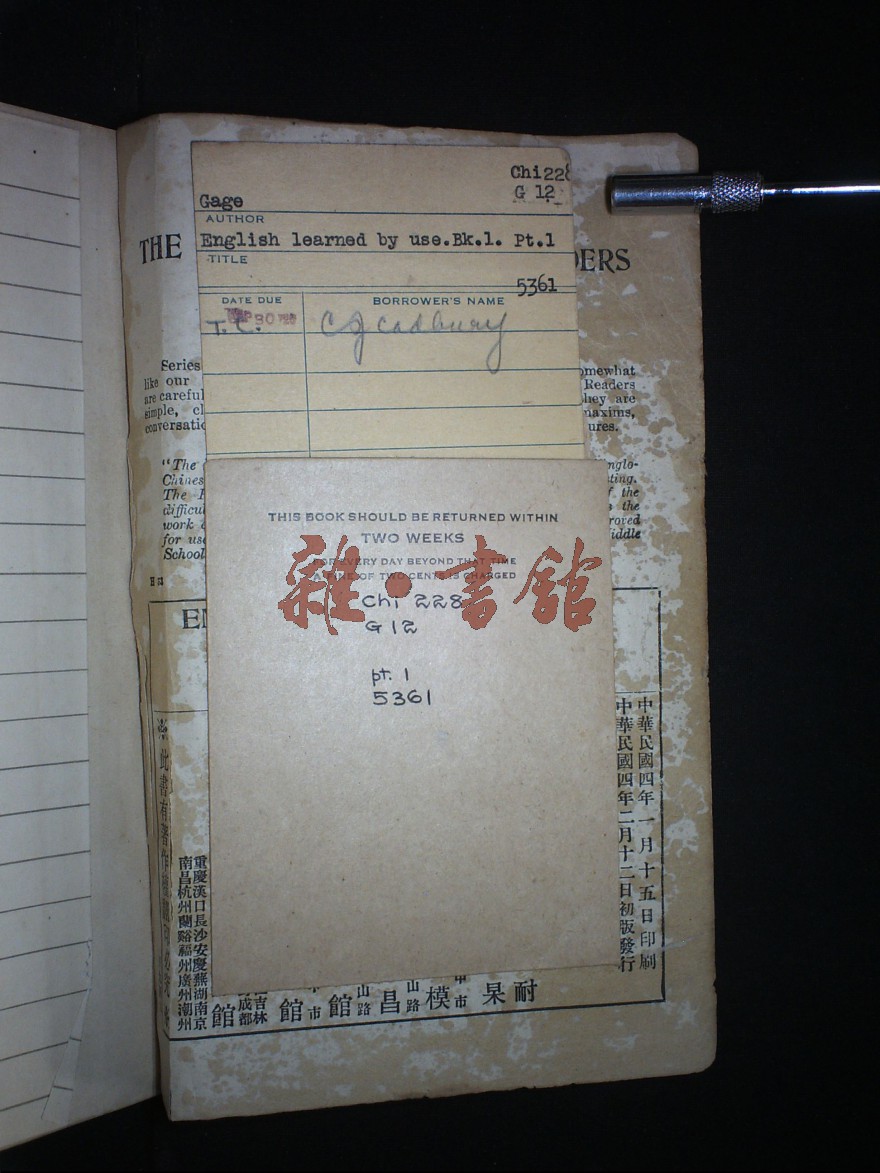 Chi 228
G 12
Gage
AUTHOR
English learned by use.Bk.1. Pt.1
TITLE
5361
DATE DUE BORROWER'S NAME
T.C. 30 C J Cadbury
THE
DERS
Series omewhat
like our Readers
are careful hey are
simple, cl maxims,
conversatio ures.
"The nglo-
Chines ting.
The f the
difficul the
work roved
for us iddle
School
THIS BOOK SHOULD BE RETURNED WITHIN
TWO WEEKS
FOR EVERY DAY BEYOND THAT TIME
A FINE OF TWO CENTS IS CHARGED
雜·書館
Chi 228
G 12
pt. 1
5361
中華民國四年一月十五日印刷
中華民國四年二月十二日初版發行
此書有著作權
重慶漢口長沙安慶蕪湖南京
南昌杭州蘭谿福州廣州潮州
吉林
成都
館
館
市
館
山路
昌
山路
模
市
杲
耐